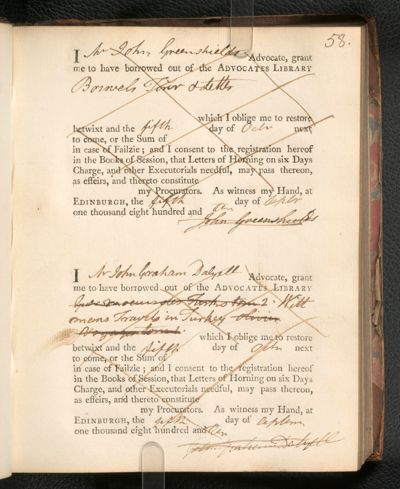 58.
I Mr John Greenshields Advocate, grant
me to have borrowed out of the ADVOCATES LIBRARY
Boswels Tour & Letter
which I oblige me to restore
betwixt and the fifth day of Octr next
to come, or the Sum of
in case of Failzie; and I consent to the registration hereof
in the Books of Session, that Letters of Horning on six Days
Charge, and other Executorials needful, may pass thereon,
as effeirs, and thereto constitute
my Procurators. As witness my Hand, at
EDINBURGH, the fifth day of Septr
one thousand eight hundred and ten
John Greenshields
I Mr John Graham Dalyell Advocate, grant
me to have borrowed out of the ADVOCATES LIBRARY
2. Witt
mans Travels in Turkey
which I oblige me to restore
betwixt and the fifth day of Octr next
to come, or the Sum of
in case of Failzie; and I consent to the registration hereof
in the Books of Session, that Letters of Horning on six Days
Charge, and other Executorials needful, may pass thereon,
as effeirs, and thereto constitute
my Procurators. As witness my Hand, at
EDINBURGH, the fifth day of Septem
one thousand eight hundred and ten
John Graham Dalyell